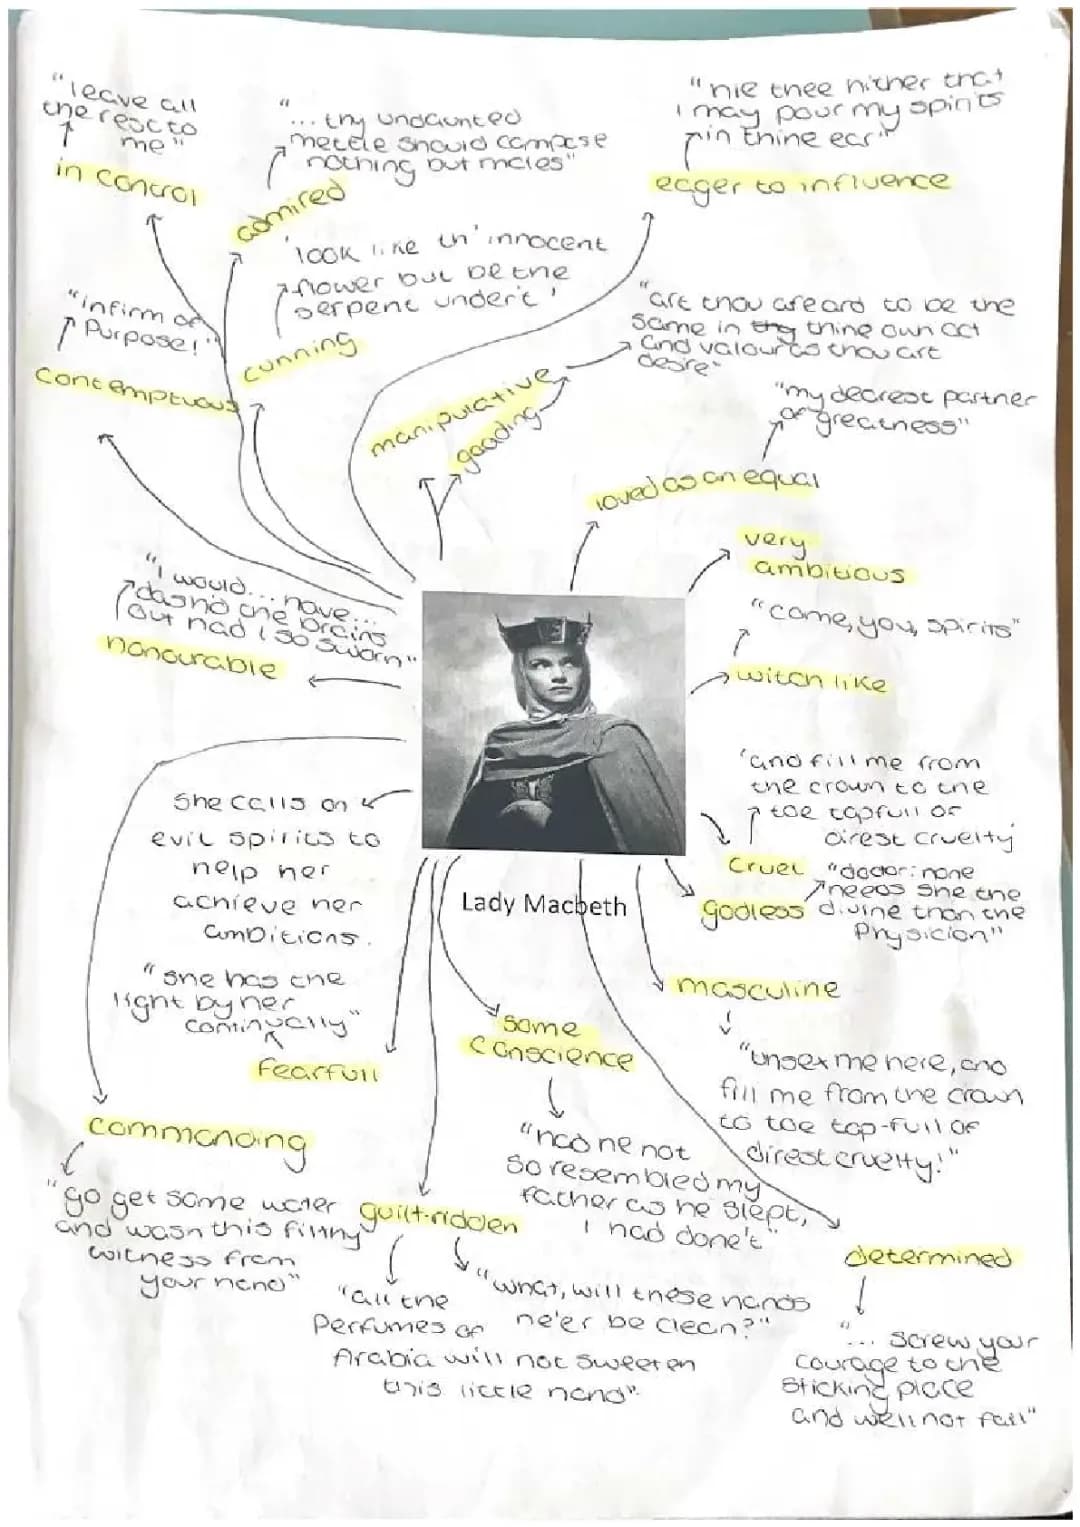 "leave all
the rest to
me"
in control
"
... thy undaunted
mettle should compose
nothing but males"
admired
"hie thee hither that
I may pour my spirits
in thine ear"
eager to influence
'look like th' innocent
flower but be the
serpent under't'
cunning
"infirm of
Purpose!"
contemptuous
"art thou afeard to be the
same in thy thine own act
and valour as thou art
desire"
manipulative
goading
"my dearest partner
of greatness"
loved as an equal
very
ambitious
"I would... have...
dash'd the brains
out had I so sworn"
honourable
"come, you, spirits"
witch like
She calls on
evil spirits to
help her
achieve her
ambitions.
'and fill me from
the crown to the
toe topfull of
direst cruelty'
cruel
"doctor: none
needs she the
divine than the
Physician"
godless
Lady Macbeth
"she has the
light by her
continually"
fearfull
some
conscience
"had he not
so resembled my
father as he slept,
I had done't"
masculine
"unsex me here, and
fill me from the crown
to toe top-full of
direst cruelty!"
commanding
"go get some water
and wash this filthy
witness from
your hand"
guilt-ridden
"all the
Perfumes of
Arabia will not sweeten
this little hand"
"what, will these hands
ne'er be clean?"
determined
"... screw your
courage to the
sticking place
and we'll not fail"